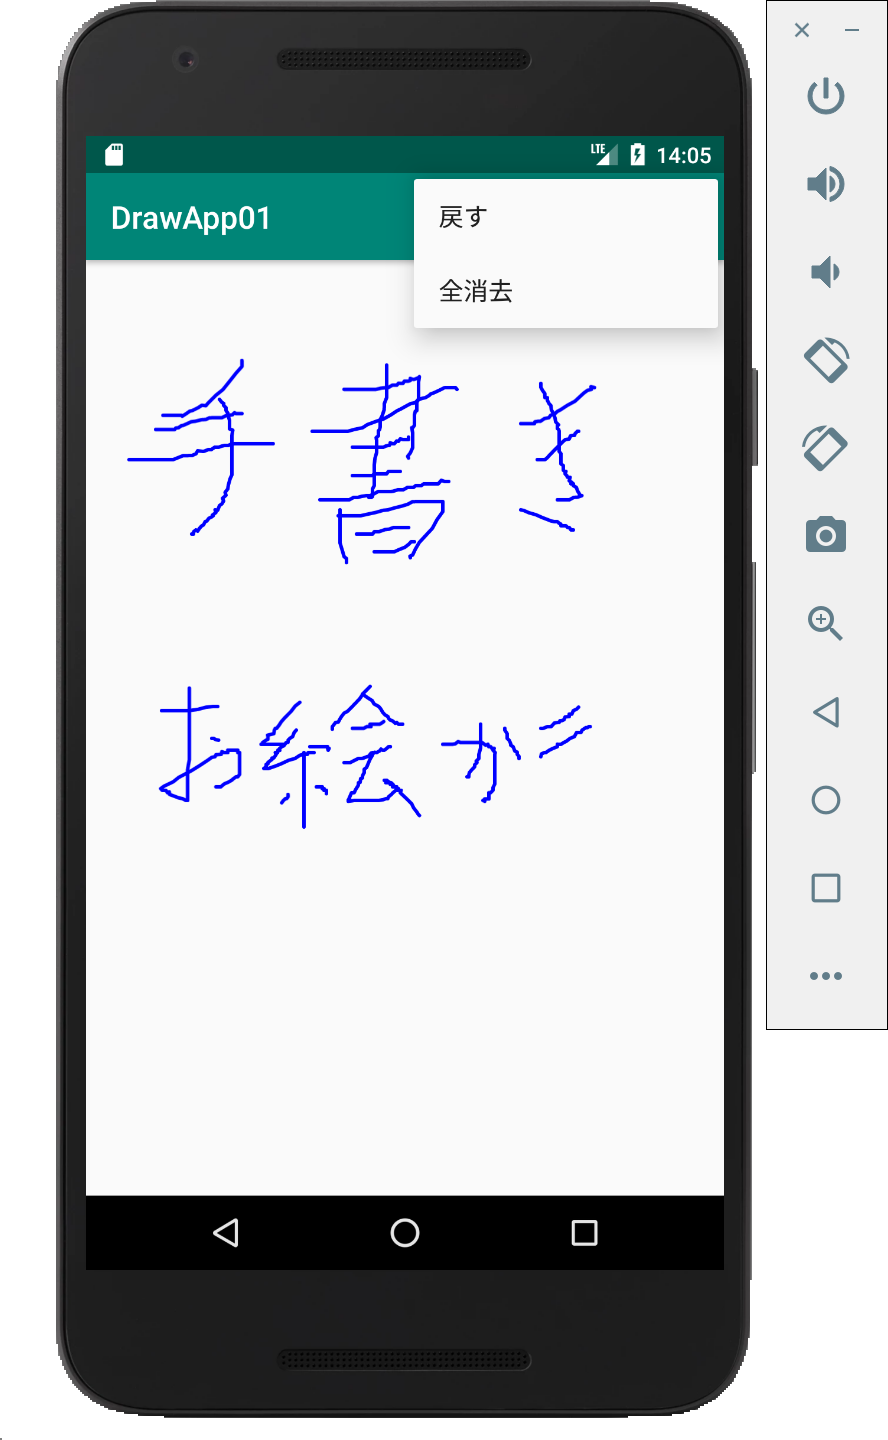 LTE 14:05
DrawApp01
戻す
全消去
手書き
お絵が